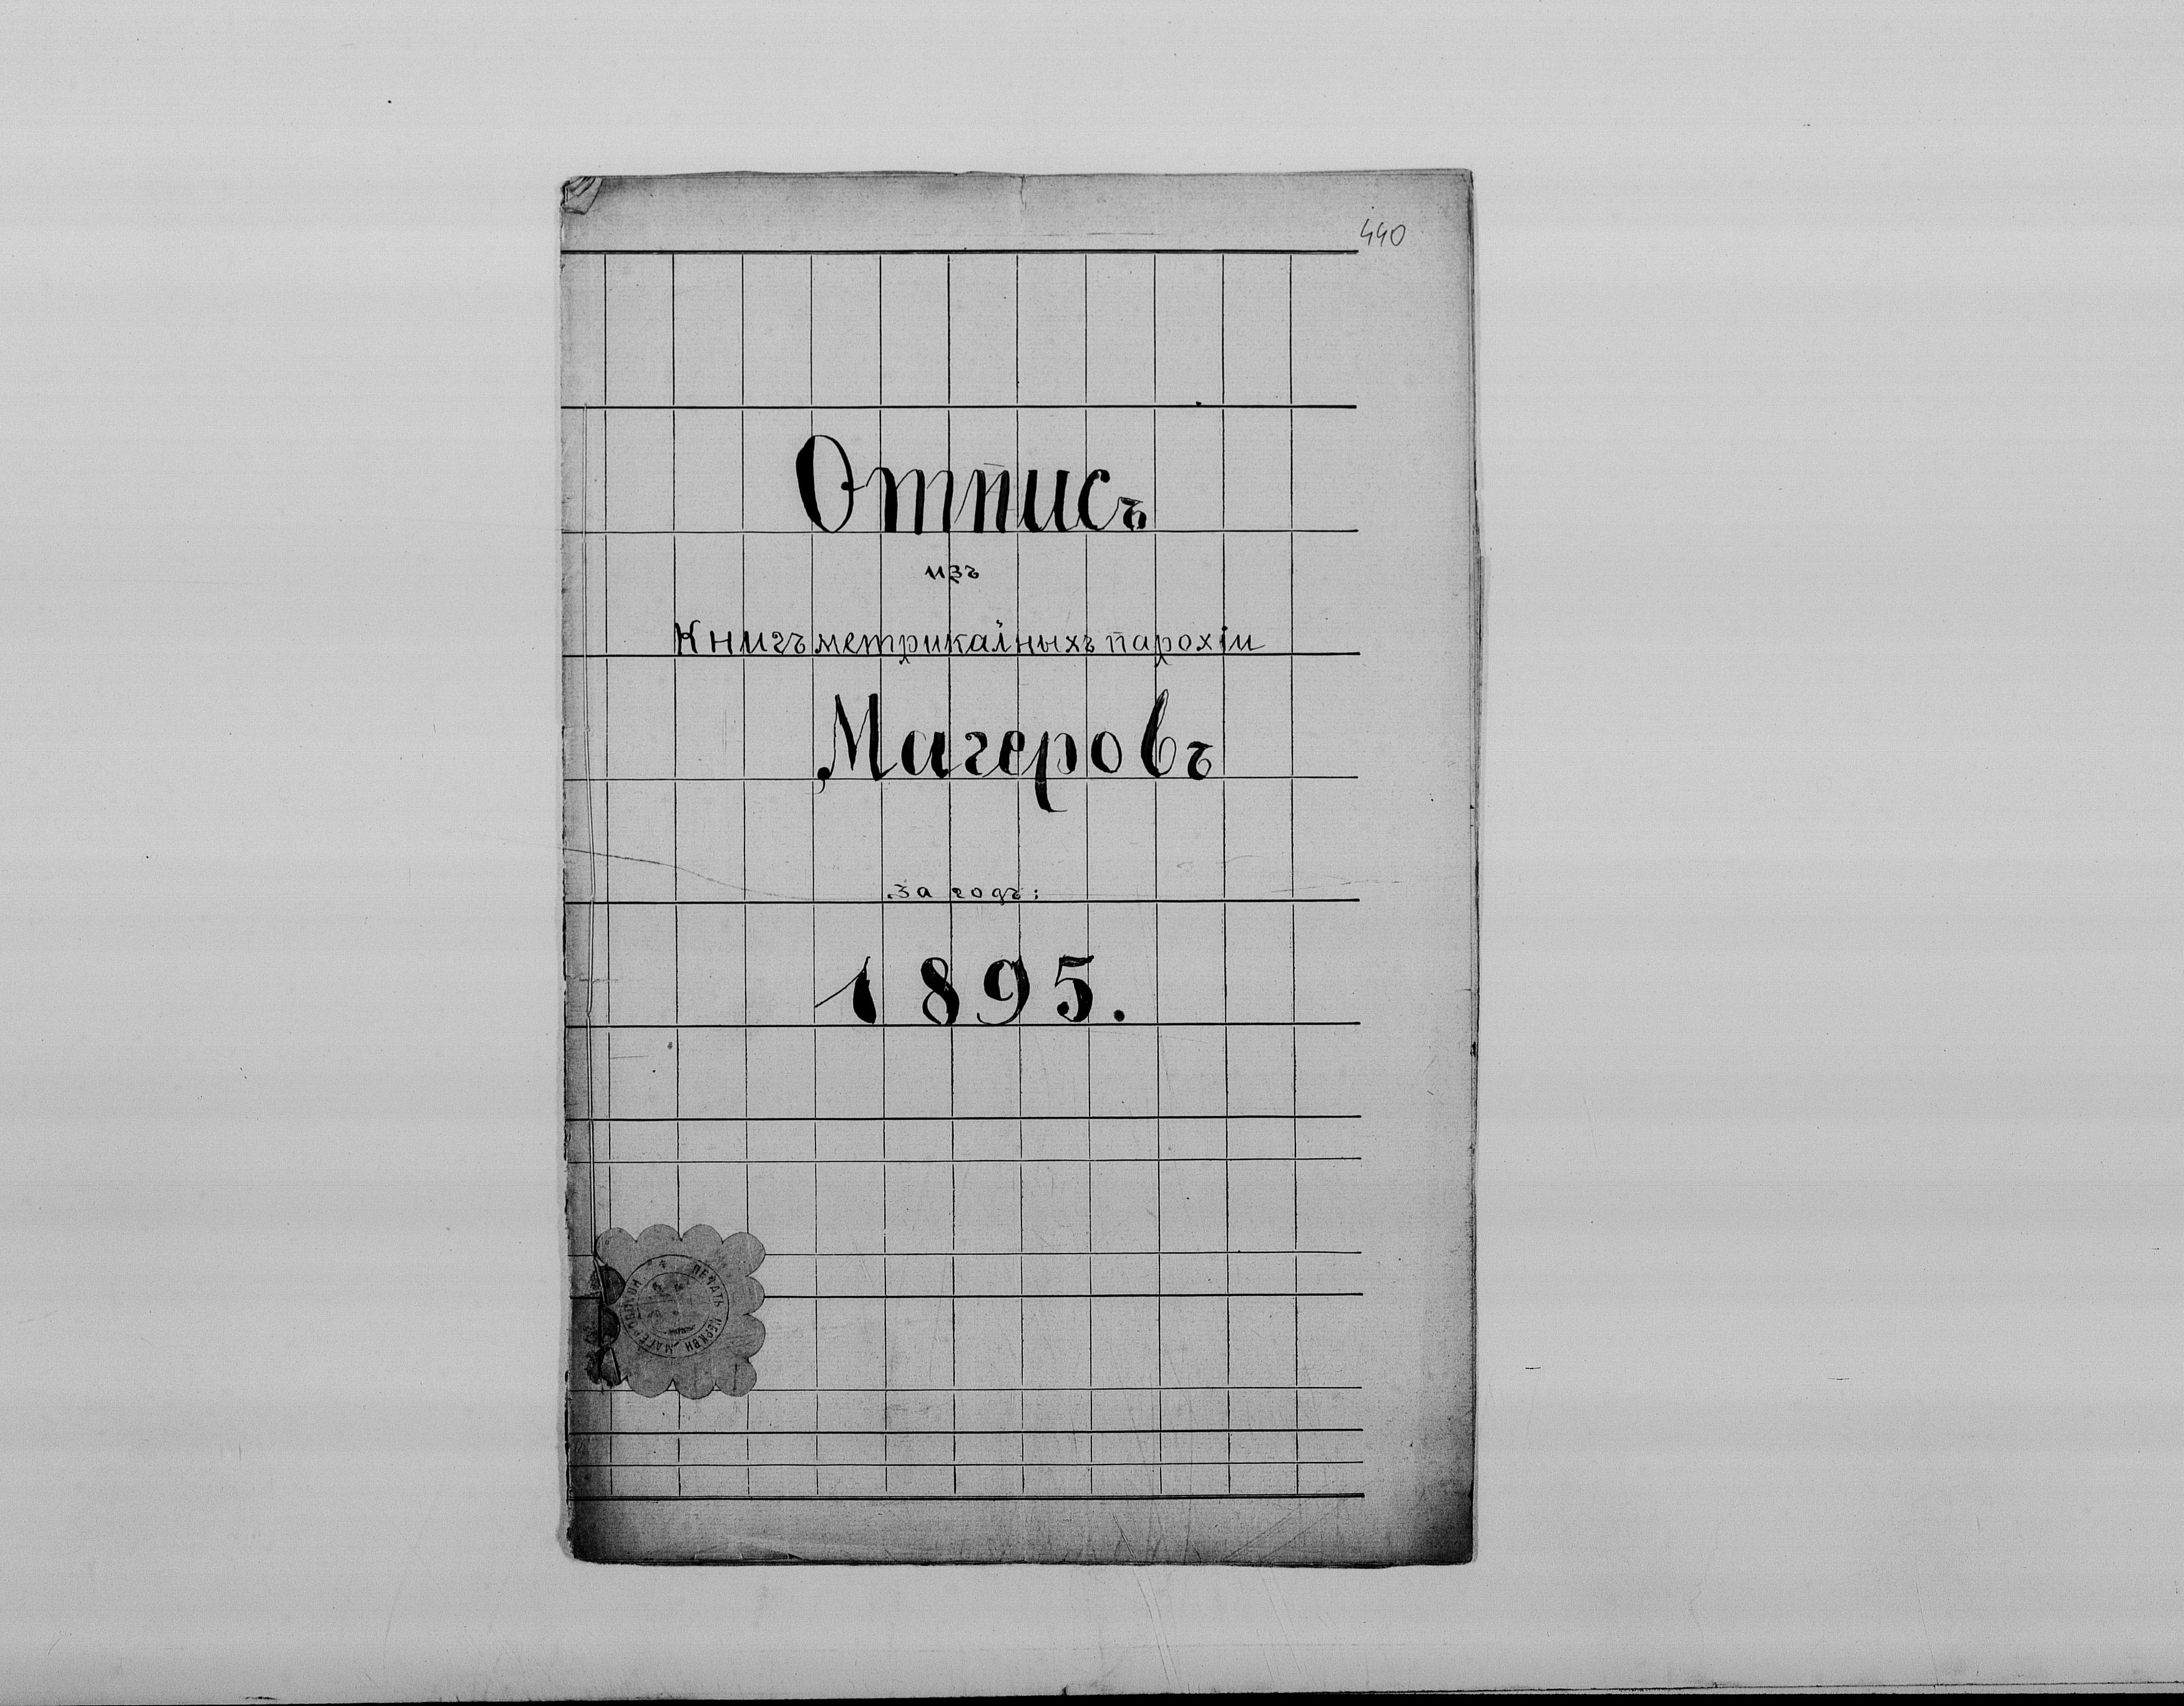 440
Отписъ
изъ
Книгъ метрикальныхъ парохіи
Магеровъ
за годъ:
1895.
ПЕЧАТЬ ЦЕРКВИ